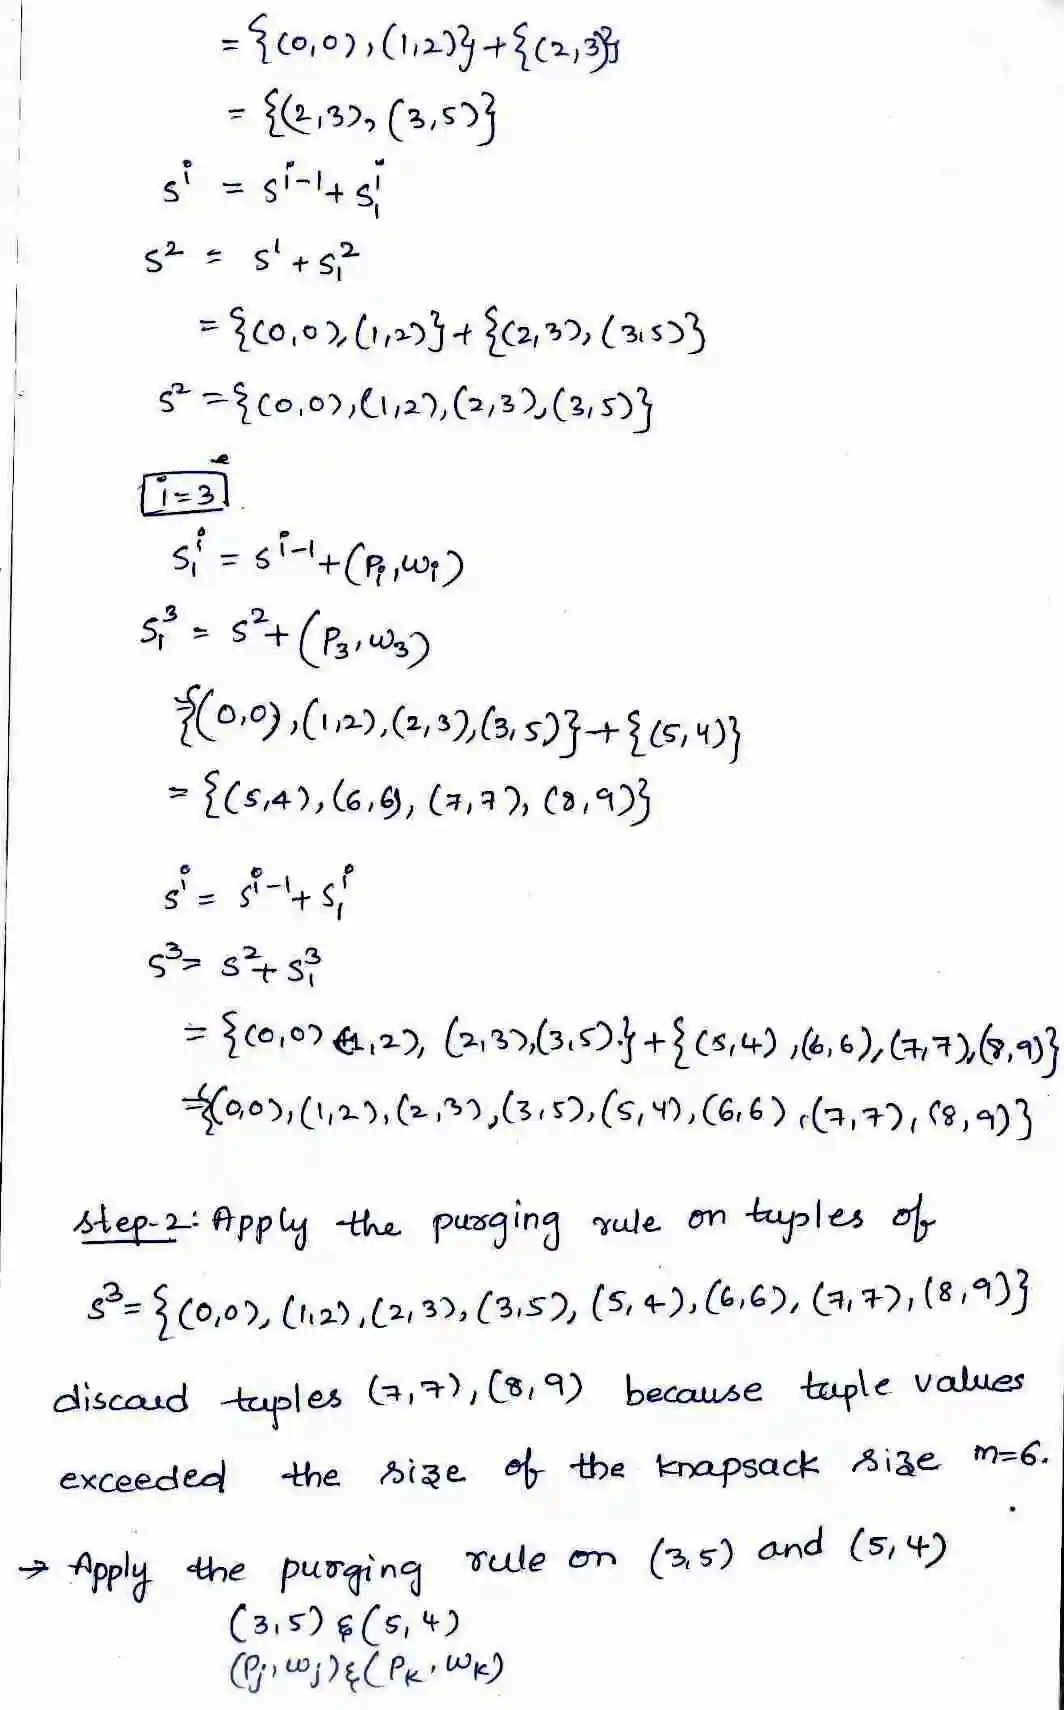 = {(0,0), (1,2)} + {(2,3)}
= {(2,3), (3,5)}
sⁱ = sⁱ⁻¹ + s₁ⁱ
s² = s¹ + s₁²
= {(0,0), (1,2)} + {(2,3), (3,5)}
s² = {(0,0), (1,2), (2,3), (3,5)}
i=3
s₁ⁱ = sⁱ⁻¹ + (Pᵢ, wᵢ)
s₁³ = s² + (P₃, w₃)
= {(0,0), (1,2), (2,3), (3,5)} + {(5,4)}
= {(5,4), (6,6), (7,7), (8,9)}
sⁱ = sⁱ⁻¹ + s₁ⁱ
s³ = s² + s₁³
= {(0,0) (1,2), (2,3), (3,5)} + {(5,4), (6,6), (7,7), (8,9)}
= {(0,0), (1,2), (2,3), (3,5), (5,4), (6,6), (7,7), (8,9)}
step-2: Apply the purging rule on tuples of
s³ = {(0,0), (1,2), (2,3), (3,5), (5,4), (6,6), (7,7), (8,9)}
discard tuples (7,7), (8,9) because tuple values
exceeded the size of the knapsack size m=6.
→ Apply the purging rule on (3,5) and (5,4)
(3,5) & (5,4)
(Pj, wj) & (Pk, wk)